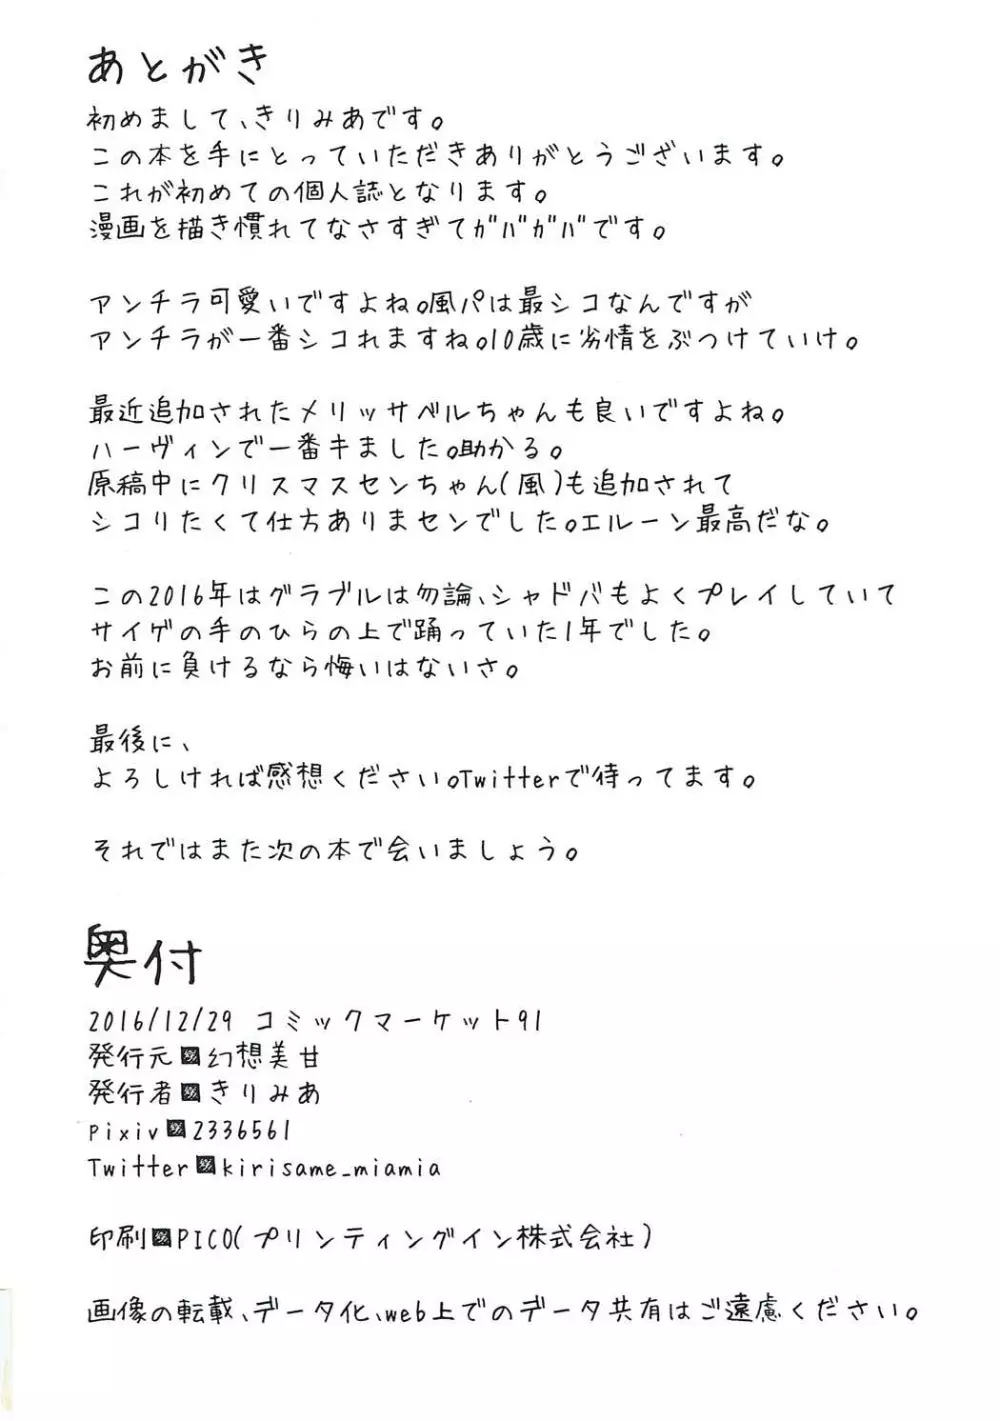 あとがき
初めまして、きりみあです。
この本を手にとっていただきありがとうございます。
これが初めての個人誌となります。
漫画を描き慣れてなさすぎてｶﾞﾊﾞｶﾞﾊﾞです。
最近追加されたメリッサベルちゃんも良いですよね。
ハーヴィンで一番キました。助かる。
原稿中にクリスマスセンちゃん(風)も追加されて
シコりたくて仕方ありませンでした。エルーン最高だな。
この2016年はグラブルは勿論、シャドバもよくプレイしていて
サイゲの手のひらの上で踊っていた1年でした。
お前に負けるなら悔いはないさ。
最後に、
よろしければ感想ください。Twitterで待ってます。
それではまた次の本で会いましょう。
奥付
2016/12/29 コミックマーケット91
発行元 幻想美甘
発行者 きりみあ
Pixiv 2336561
Twitter kirisame_miamia
印刷 PICO(プリンティングイン株式会社)
画像の転載、データ化、web上でのデータ共有はご遠慮ください。